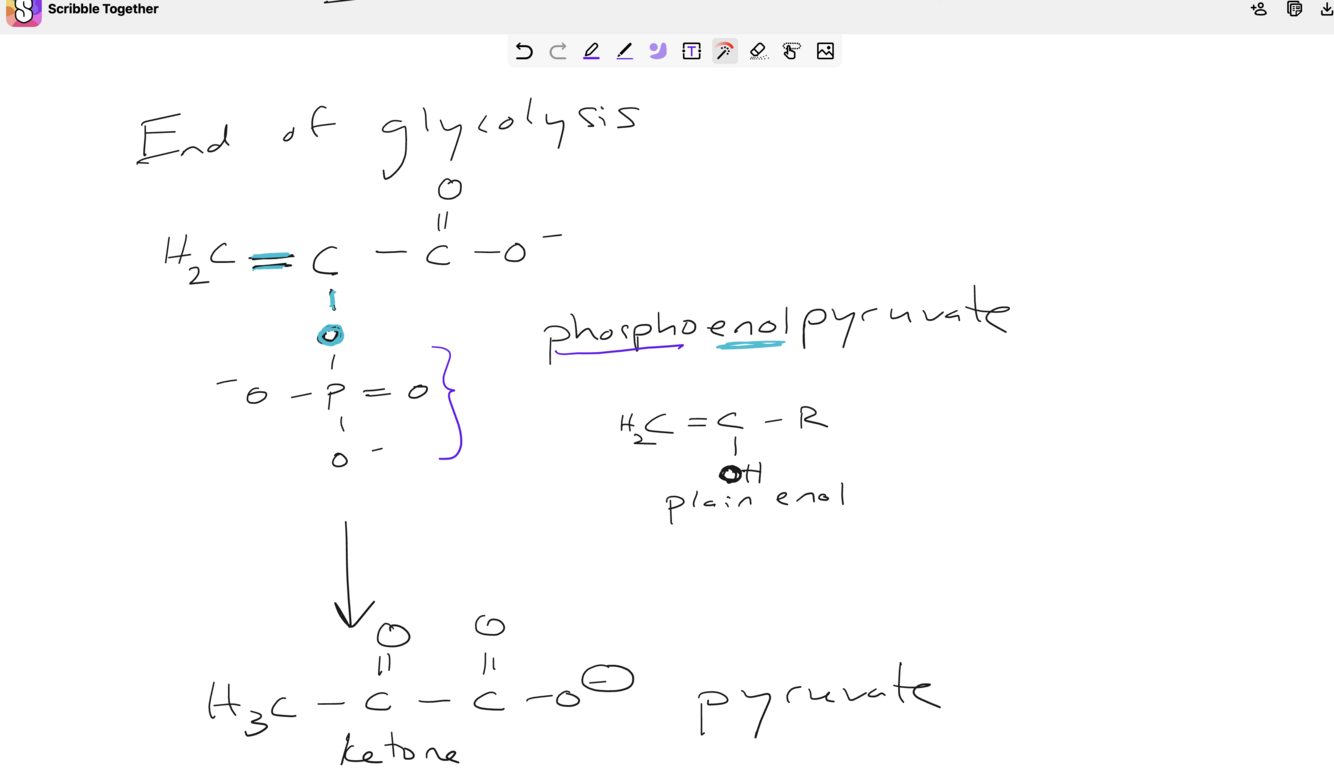 Scribble Together
End of glycolysis
O
||
H2C = C - C - O⁻
|
O
|
⁻O - P = O
|
O⁻
phosphoenolpyruvate
H2C = C - R
|
OH
plain enol
O O
|| ||
H3C - C - C - O⁻
ketone
pyruvate